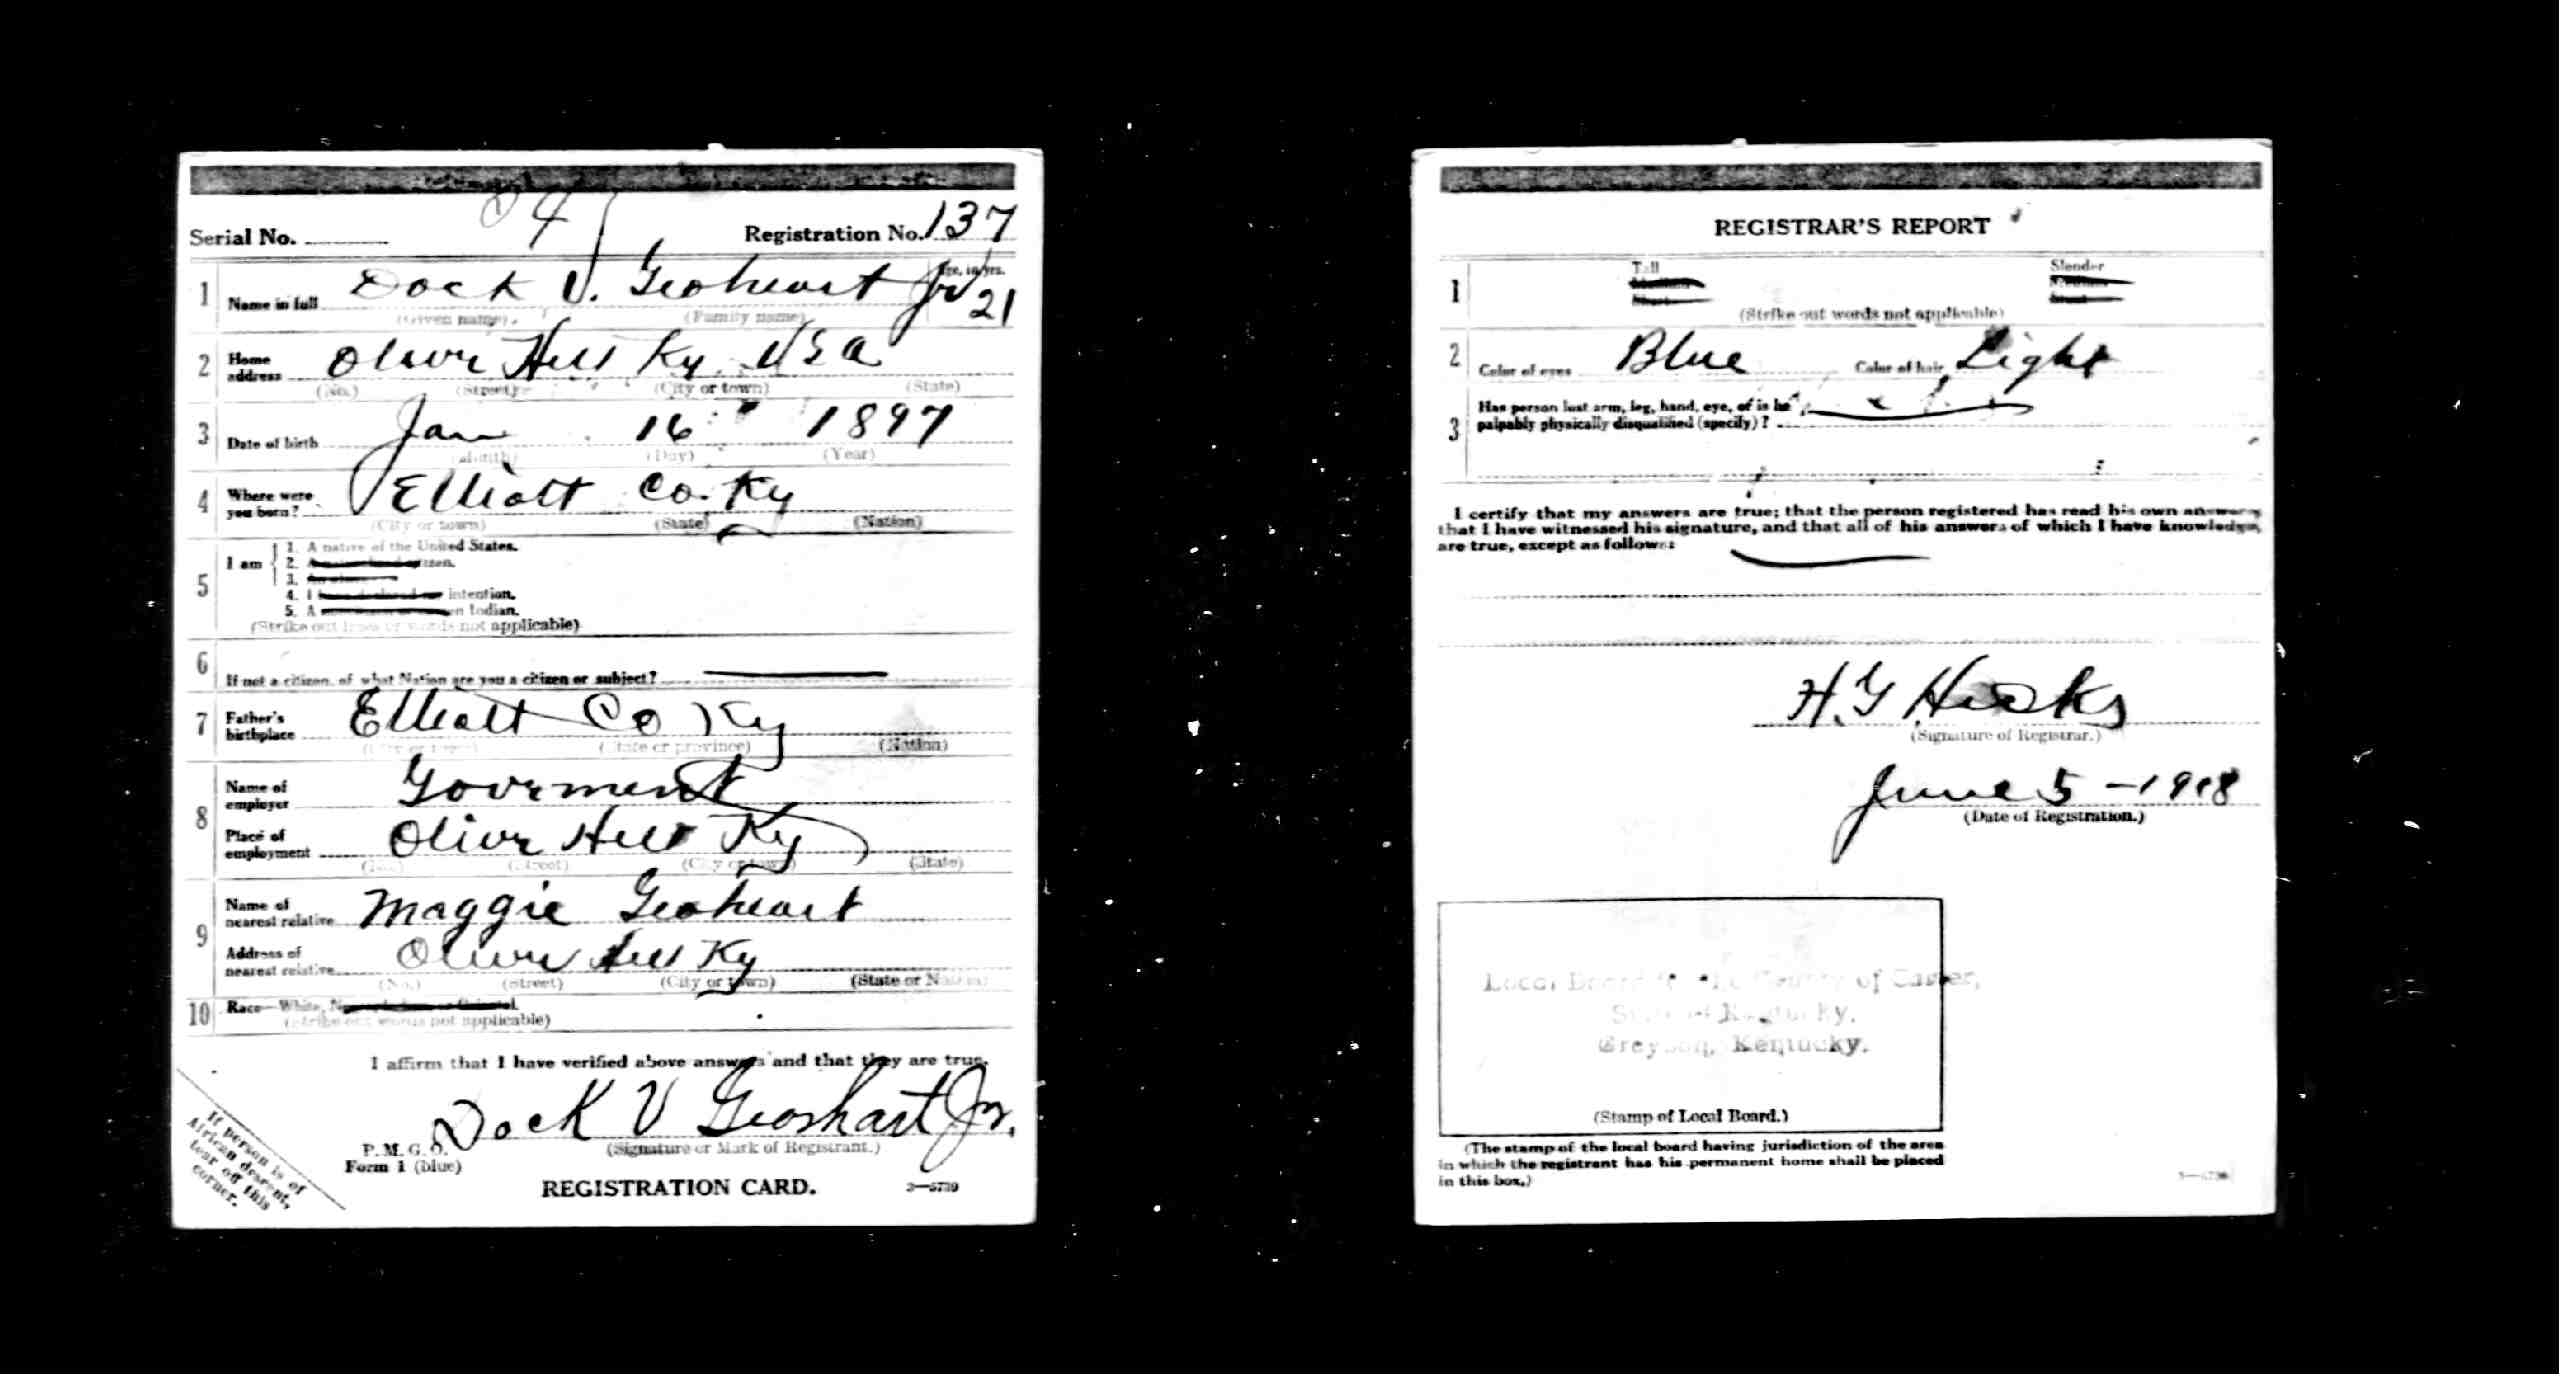 Serial No.
Registration No. 137
1 Name in full Dock V. Geoheart Jr
Age, in yrs. 21
(Given name) (Family name)
2 Home address Olivr Hill Ky. USA
(No.) (Street) (City or town) (State)
3 Date of birth Jan 16 1897
(Month) (Day) (Year)
4 Where were you born? Elliott Co. Ky
(City or town) (State) (Nation)
5 I am
1. A native of the United States.
2. citizen.
3.
4. I intention.
5. A Indian.
(Strike out lines or words not applicable)
6 If not a citizen, of what Nation are you a citizen or subject?
7 Father's birthplace Elliott Co Ky
(City or town) (State or province) (Nation)
8 Name of employer Govrment
Place of employment Olivr Hill Ky
(No.) (Street) (City or town) (State)
9 Name of nearest relative Maggie Geoheart
Address of nearest relative Olivr Hill Ky
(No.) (Street) (City or town) (State or Nation)
10 Race—White,
(Strike out words not applicable)
I affirm that I have verified above answers and that they are true.
Dock V Geoshart Jr.
(Signature or Mark of Registrant.)
P. M. G. O.
Form 1 (blue)
REGISTRATION CARD.
3—5739
If person is of
African descent,
tear off this
corner.
REGISTRAR'S REPORT
1 Tall Slender
(Strike out words not applicable)
2 Color of eyes Blue Color of hair Light
3 Has person lost arm, leg, hand, eye, or is he
palpably physically disqualified (specify)?
I certify that my answers are true; that the person registered has read his own answers,
that I have witnessed his signature, and that all of his answers of which I have knowledge,
are true, except as follows:
H. G Hicks
(Signature of Registrar.)
June 5 - 1918
(Date of Registration.)
Local Board for the County of Carter,
State of Kentucky,
Grayson, Kentucky.
(Stamp of Local Board.)
(The stamp of the local board having jurisdiction of the area
in which the registrant has his permanent home shall be placed
in this box.)